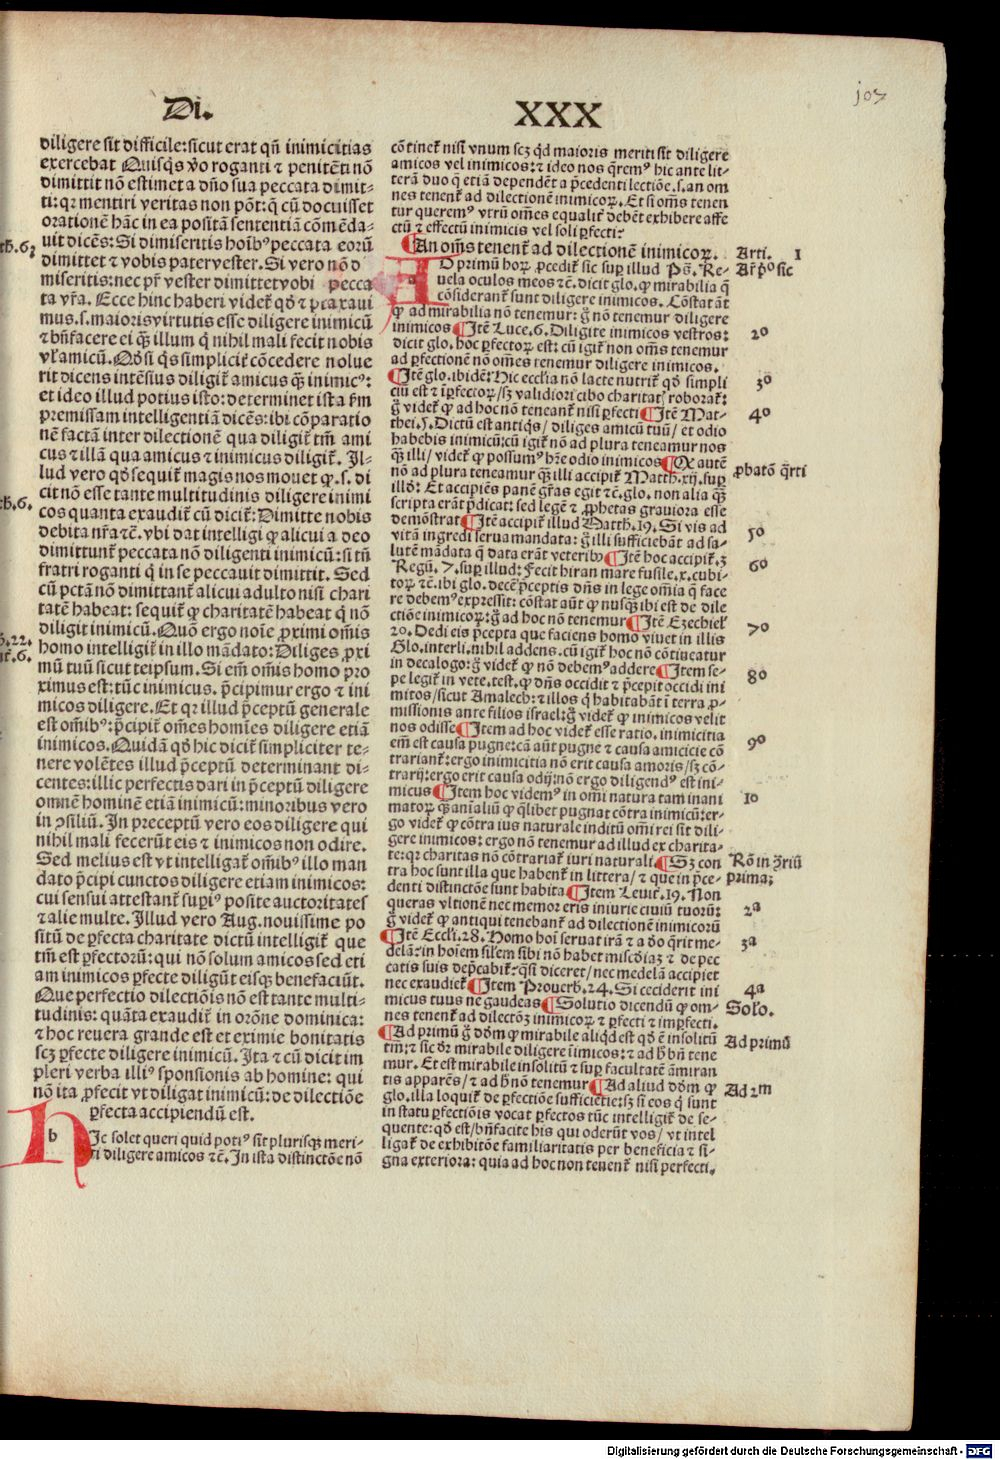 Di.
XXX
103
diligere sit difficile: sicut erat qñ inimicitias
exercebat Quisq̃s ṽo roganti ⁊ penitẽti nõ
dimittit nõ estimet a dño sua peccata dimit-
ti: qr mentiri veritas non põt: q̃ cũ docuisset
orationẽ hãc in ea positã sententiã commẽda-
uit dicẽs: Si dimiseritis hoĩbꝰ peccata eorũ
dimittet ⁊ vobis pater vester. Si vero nõ d
miseritis: nec pr̃ vester dimittet vobi pecca
ta vr̃a. Ecce hinc haberi videt᷑ qđ ⁊ praxaui
mus .s. maioris virtutis esse diligere inimicũ
⁊ bñfacere ei q̃ȝ illum q̃ nihil mali fecit nobis
vl̓ amicũ. Qđ si q̃s simplicit᷑ cõcedere nolue
rit dicens intẽsius diligit᷑ amicus q̃ȝ inimicꝰ:
et ideo illud potius isto: determinet ista s̃m
premissam intelligentiã dicẽs: ibi cõparatio
nẽ factã inter dilectionẽ qua diligit᷑ tm̃ ami
cus ⁊ illã qua amicus ⁊ inimicus diligit᷑. Il-
lud vero qđ sequit᷑ magis nos mouet ꝙ .s. di
cit nõ esse tante multitudinis diligere inimi
cos quanta exaudit᷑ cũ dicit᷑: Dimitte nobis
debita nr̃a ⁊c̃. vbi dat intelligi ꝙ alicui a deo
dimittunt᷑ peccata nõ diligenti inimicũ: si tñ
fratri roganti q̃ in se peccauit dimittit. Sed
cũ pctã nõ dimittant᷑ alicui adulto nisi chari
tatẽ habeat: sequit᷑ ꝙ charitatẽ habeat q̃ nõ
diligit inimicũ. Quõ ergo noĩe ꝓximi om̃is
homo intelligit᷑ in illo mãdato: Diliges ꝓxi
mũ tuũ sicut teipsum. Si em̃ om̃is homo pro
ximus est: tũc inimicus. p̃cipimur ergo ⁊ ini
micos diligere. Et qr illud p̃ceptũ generale
est om̃ibꝰ: p̃cipit᷑ om̃es homĩes diligere etiã
inimicos. Quidã qđ hic dicit᷑ simpliciter te-
nere volẽtes illud p̃ceptũ determinant di-
centes: illic perfectis dari in p̃ceptũ diligere
omnẽ hominẽ etiã inimicũ: minoribus vero
in ꝯsiliũ. In preceptũ vero eos diligere qui
nihil mali fecerũt eis ⁊ inimicos non odire.
Sed melius est vt intelligat᷑ om̃ibꝰ illo man
dato p̃cipi cunctos diligere etiam inimicos:
cui sensui attestant᷑ supiꝰ posite auctoritates
⁊ alie multe. Illud vero Aug. nouissime po
sitũ de ꝑfecta charitate dictũ intelligit᷑ que
tm̃ est ꝑfectorũ: qui nõ solum amicos sed eti
am inimicos ꝑfecte diligũt eisqȝ benefaciũt.
Que perfectio dilectiõis nõ est tante multi-
tudinis: quãta exaudit᷑ in orõne dominica:
⁊ hoc reuera grande est et eximie bonitatis
scȝ ꝑfecte diligere inimicũ. Ita ⁊ cũ dicit im
pleri verba illiꝰ sponsionis ab homine: qui
nõ ita ꝓfecit vt diligat inimicũ: de dilectiõe
ꝑfecta accipiendũ est.
b
Hic solet queri quid potiꝰ sit plurisqȝ meri-
ti diligere amicos ⁊c̃. In ista distinctõe nõ
cõtinet᷑ nisi vnum scȝ qđ maioris meriti sit diligere
amicos vel inimicos: ⁊ ideo nos q̃remꝰ hic ante lit-
terã duo q̃ etiã dependẽt a p̃cedenti lectiõe .s. an om
nes tenent᷑ ad dilectionem inimicoꝝ. Et si om̃s tenen
tur queremꝰ vtrũ om̃es equalit᷑ debẽt exhibere affe
ctũ ⁊ effectũ inimicis vel soli ꝑfecti?
¶ An om̃s tenent᷑ ad dilectionem inimicoꝝ.
Arti. 1
AD primũ hoꝝ ꝓcedit᷑ sic sup illud Ps̃. Re-
uela oculos meos ⁊c̃. dicit glo. ꝙ mirabilia q̃
cõsiderant᷑ sunt diligere inimicos. Cõstat ãt
ꝙ ad mirabilia nõ tenemur: g̃ nõ tenemur diligere
inimicos ¶ Itẽ Luce .6. Diligite inimicos vestros:
dicit glo. hoc ꝑfectoꝝ est: cũ igit᷑ non om̃s tenemur
ad ꝑfectionẽ nõ om̃es tenemur diligere inimicos.
¶ Itẽ glo. ibidẽ: Hic eccl̓ia nõ lacte nutrit᷑ qđ simpli
ciũ est ⁊ ĩꝑfectoꝝ / sȝ validiori cibo charitat᷑ roborat᷑:
g̃ videt᷑ ꝙ ad hoc nõ teneant᷑ nisi ꝑfecti ¶ Itẽ Mat-
thei .5. Dictũ est antiq̃s / diliges amicũ tuũ / et odio
habebis inimicũ: cũ igit᷑ nõ ad plura teneamur nos
q̃ȝ illi / videt᷑ ꝙ possumꝰ hr̃e odio inimicos ¶ Qꝛ autẽ
nõ ad plura teneamur q̃ȝ illi accipit᷑ Matth. xij. sup
illđ: Et accipiẽs panẽ gr̃as egit ⁊c̃. glo. non alia q̃ȝ
scripta erãt p̃dicat: sed legẽ ⁊ ꝓphetas grauiora esse
demõstrat ¶ Itẽ accipit᷑ illud Matth. 19. Si vis ad
vitã ingredi serua mandata: g̃ illi sufficiebãt ad sa-
lutẽ mãdata q̃ data erãt veteribꝰ ¶ Itẽ hoc accipit᷑ .3
Regũ. 7. sup illud: Fecit hiran mare fusile .x. cubi-
toꝝ ⁊c̃. ibi glo. decẽ p̃ceptis dñs in lege om̃ia q̃ face
re debemꝰ expressit: cõstat aũt ꝙ nusq̃ȝ ibi est de dile
ctiõe inimicoꝝ: g̃ ad hoc nõ tenemur ¶ Itẽ Ezechiel᷑
20. Dedi eis p̃cepta que faciens homo viuet in illis
Glo. interli. nihil addens. cũ igit᷑ hoc nõ cõtineatur
in decalogo: g̃ videt᷑ ꝙ nõ debemꝰ addere ¶ Item se-
pe legit᷑ in vete. test. ꝙ dñs occidit ⁊ p̃cepit occidi ini
mitos / sicut Amalech: ⁊ illos q̃ habitabãt ĩ terra ꝓ-
missionis ante filios israel: g̃ videt᷑ ꝙ inimicos velit
nos odisse ¶ Item ad hoc videt᷑ esse ratio. inimicitia
em̃ est causa pugne: cã aũt pugne ⁊ causa amicicie cõ
trariant᷑: ergo inimicitia nõ erit causa amoris / sȝ cõ-
trarij: ergo erit causa odij: nõ ergo diligendꝰ est ini-
micus ¶ Item hoc videmꝰ in om̃i natura tam inani
matoꝝ q̃ȝ aĩaliũ ꝙ q̃libet pugnat cõtra inimicũ: er-
go videt᷑ ꝙ cõtra ius naturale inditũ om̃i rei sit dili-
gere inimicos: ergo nõ tenemur ad illud ex charita-
te: qr charitas nõ cõtrariat᷑ iuri naturali ¶ Sȝ con
tra hoc sunt illa que habent᷑ in littera / ⁊ que in p̃ce-
denti distinctõe sunt habita ¶ Item Leuit᷑. 19. Non
queras vltionẽ nec memor eris iniurie ciuiũ tuorũ:
g̃ videt᷑ ꝙ antiqui tenebant᷑ ad dilectionẽ inimicorũ
¶ Itẽ Eccl̓i. 28. Homo hoĩ seruat irã ⁊ a deo q̃rit me-
delã: in hoĩem sil̓em sibi nõ habet misc̃diaȝ ⁊ de pec
catis suis dep̃cabit᷑: q̃si diceret / nec medelã accipiet
nec exaudiet᷑ ¶ Item Prouerb. 24. Si ceciderit ini
micus tuus ne gaudeas ¶ Solutio dicendũ ꝙ om-
nes tenent᷑ ad dilectõȝ inimicoꝝ ⁊ ꝑfecti ⁊ imꝑfecti.
¶ Ad primũ g̃ dõm ꝙ mirabile aliq̃d est qđ ẽ insolitũ
tm̃: ⁊ sic dr̃ mirabile diligere ĩimicos: ⁊ ad hͨ bñ tene
mur. Et est mirabile insolitũ ⁊ sup facultatẽ ãmiran
tis apparẽs / ⁊ ad hͨ nõ tenemur ¶ Ad aliud dõm ꝙ
glo. illa loquit᷑ de ꝑfectiõe sufficiẽtie: sȝ si eos q̃ sunt
in statu ꝑfectiõis vocat ꝑfectos tũc intelligit᷑ de se-
quente: qđ est / bñfacite his qui oderũt vos / vt intel
ligat᷑ de exhibitõe familiaritatis per beneficia ⁊ si-
gna exteriora: quia ad hoc non tenent᷑ nisi perfecti.
Ar̃ p̃o sic
2o
3o
4o
ꝓbatõ q̃rti
5o
6o
7o
8o
9o
10
Rõ in ꝯ̃riũ
prima;
2a
3a
4a
Solo.
Ad primũ
Ad 2m
Digitalisierung gefördert durch die Deutsche Forschungsgemeinschaft - DFG